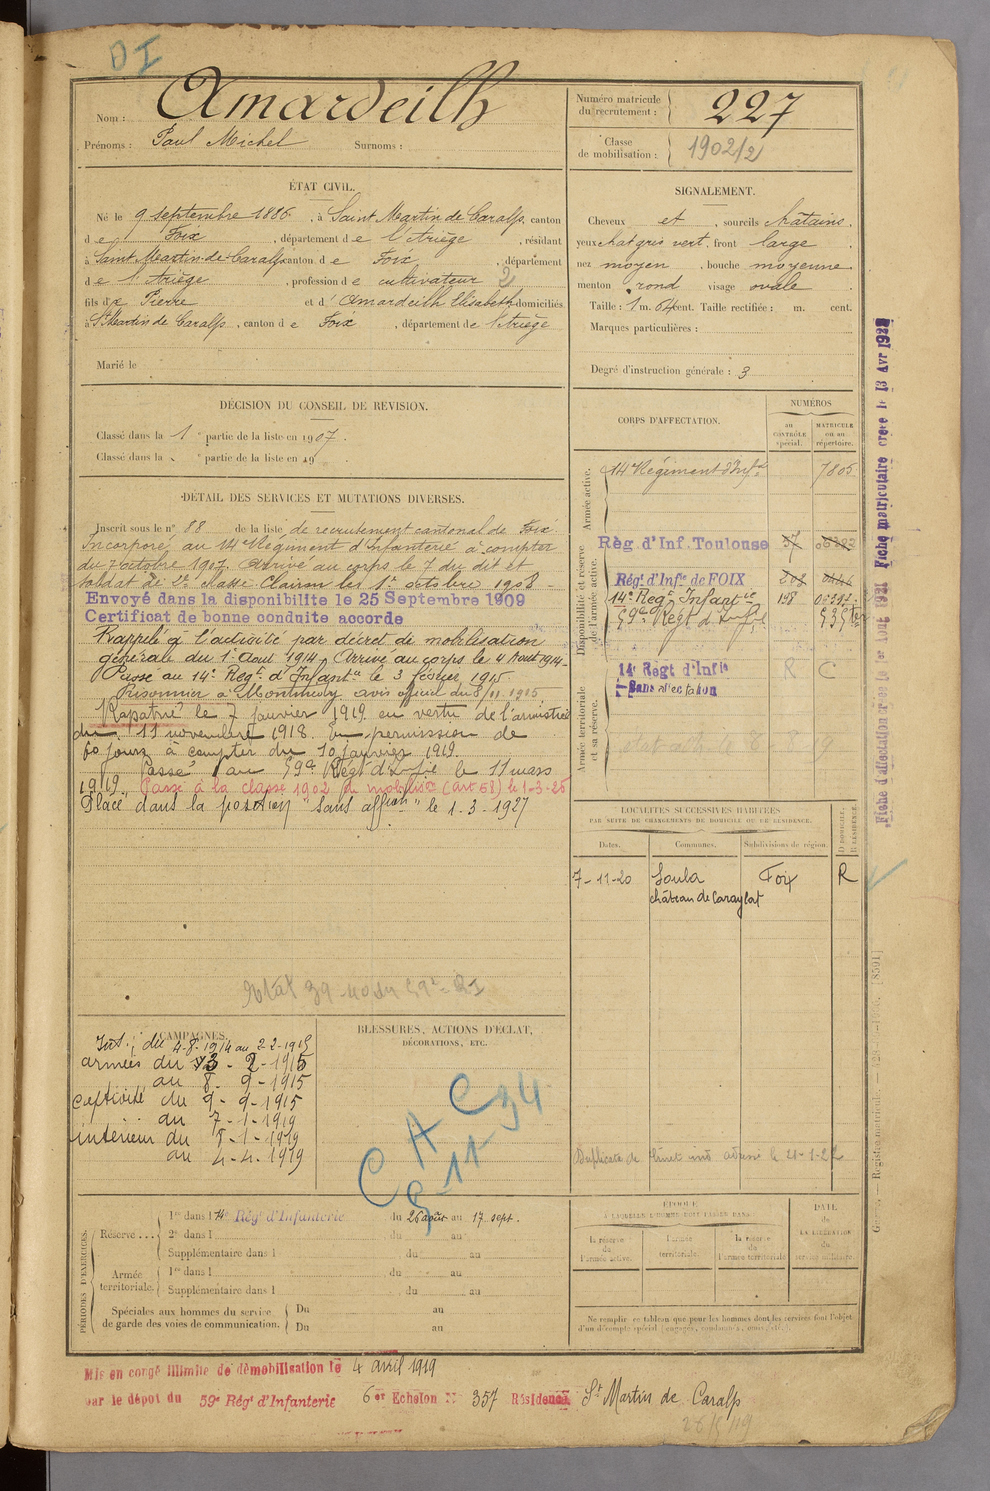 DI
Nom : Amardeilh
Prénoms : Paul Michel Surnoms :
Numéro matricule du recrutement : 227
Classe de mobilisation : 1902/2
ÉTAT CIVIL.
Né le 9 septembre 1886, à Saint Martin de Caralp, canton
de Foix, département de l'Ariège, résidant
à Saint Martin-de-Caralp canton de Foix, département
de l'Ariège, profession de cultivateur 2
fils de Pierre et d'Amardeilh Elisabeth domiciliés
à St Martin de Caralp, canton de Foix, département de l'Ariège
Marié le
SIGNALEMENT.
Cheveux et, sourcils châtains.
yeux chat gris vert, front large.
nez moyen, bouche moyenne
menton rond visage ovale
Taille : 1 m. 64 cent. Taille rectifiée : m. cent.
Marques particulières :
Degré d'instruction générale : 3
DÉCISION DU CONSEIL DE REVISION.
Classé dans la 1e partie de la liste en 1907.
Classé dans la e partie de la liste en 19
DÉTAIL DES SERVICES ET MUTATIONS DIVERSES.
Inscrit sous le n° 88 de la liste de recrutement cantonal de Foix
Incorporé au 14e Régiment d'Infanterie à compter
du 7 octobre 1907. Arrivé au corps le 7 du dit et
soldat de 2e classe. Clairon le 1er octobre 1908
Envoyé dans la disponibilite le 25 Septembre 1909
Certificat de bonne conduite accorde
Rappelé à l'activité par décret de mobilisation
générale du 1er Aout 1914. Arrivé au corps le 4 Aout 1914
Passé au 14e Regt d'Infantie le 3 février 1915
Prisonnier à avis officiel du 8/11 1915
Rapatrié le 7 janvier 1919 en vertu de l'armistice
du 11 novembre 1918. En permission de
60 jours à compter du 10 janvier 1919.
Passé au 59e Régt d'Infie le 11 mars
1919. Passé à la classe 1902 de mobilison (art 58) le 1-3-25
Placé dans la position "Sans affon" le 1.3-1927
CORPS D'AFFECTATION.
NUMÉROS
au CONTRÔLE spécial.
MATRICULE ou au répertoire.
Armée active.
14e Régiment d'Infie 7805
Disponibilité et réserve de l'armée active.
Règ. d'Inf. Toulouse 37
Régt d'Infie de FOIX 208
14e Regt Infantie 198
59e Régt d'Infie
Armée territoriale et sa réserve.
14e Regt d'Infie R C
Sans affectation
LOCALITÉS SUCCESSIVES HABITÉES
PAR SUITE DE CHANGEMENTS DE DOMICILE OU DE RÉSIDENCE.
Dates. Communes. Subdivisions de région. D. DOMICILE. R. RÉSIDENCE.
7-11-20 Soula Foix R
château de Caraylat
Duplicata de livret adressé le 21-1-22
CAMPAGNES.
Int. : du 4-8-1914 au 2-2-1915
armées du 3-2-1915
au 8-9-1915
captivité du 9-9-1915
au 7-1-1919
intérieur du 8-1-1919
au 4-4-1919
BLESSURES, ACTIONS D'ÉCLAT,
DÉCORATIONS, ETC.
C A C
9-11-34
PÉRIODES D'EXERCICES.
Réserve....
1re dans le 14e Régt d'Infanterie du 26 août au 17 sept.
2e dans l du au
Supplémentaire dans l du au
Armée territoriale.
1re dans l du au
Supplémentaire dans l du au
Spéciales aux hommes du service de garde des voies de communication.
Du au
Du au
ÉPOQUE
À LAQUELLE L'HOMME DOIT PASSER DANS :
la réserve de l'armée active. l'armée territoriale. la réserve de l'armée territoriale.
DATE de LA LIBÉRATION du service militaire.
Ne remplir ce tableau que pour les hommes dont les services font l'objet
d'un décompte spécial (engagés, condamnés, omis, etc.).
Mis en congé illimité de démobilisation le 4 avril 1919
par le dépôt du 59e Rég' d'Infanterie 6er Echelon N° 357 Résidence St Martin de Caralp
Fiche d'affectation créée le 1er Aout 1921 Fiche matriculaire créée le 13 Avr 1928